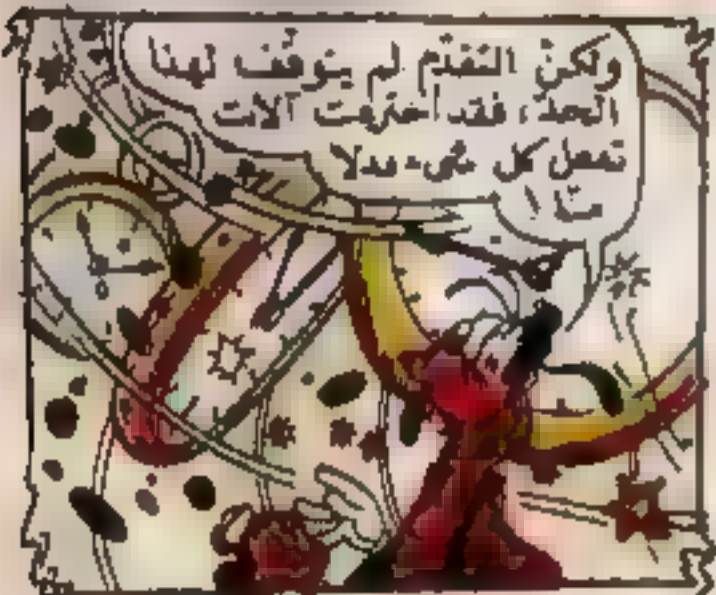 ولكنّ التقدّم لم يتوقّف لهنا
الحدّ، فقد اخترعت آلات
تفعل كل شيء بدلا
منّا !